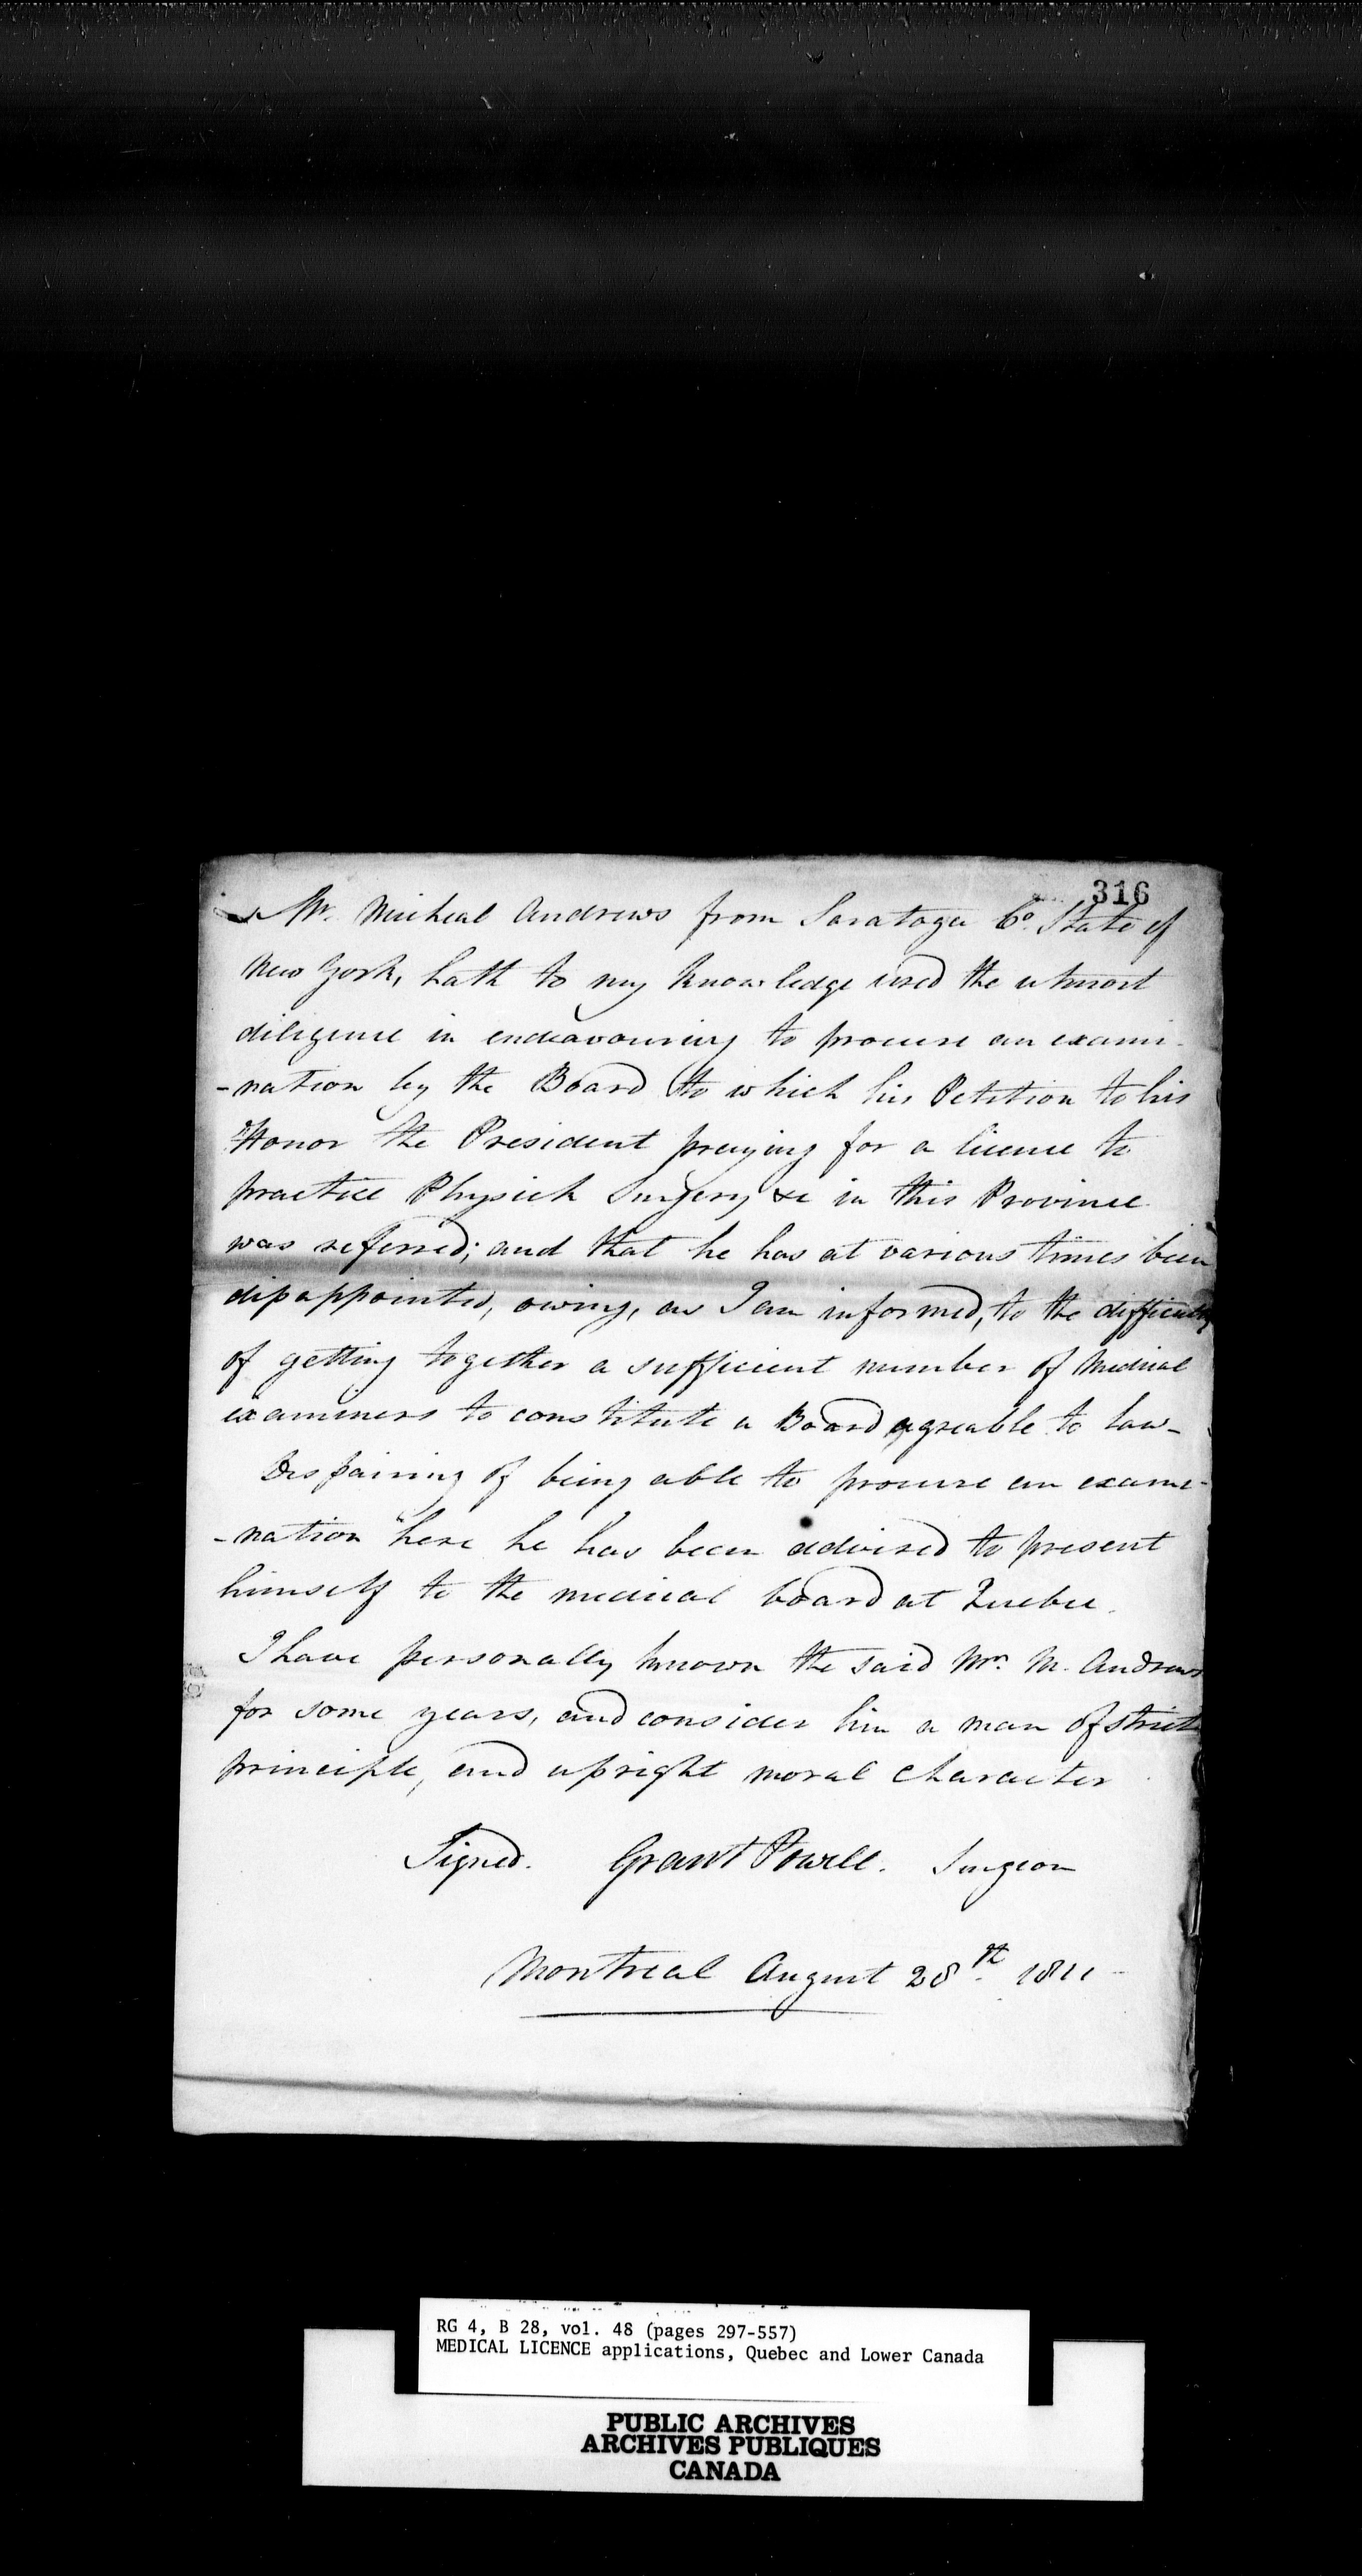 316
Mr. Micheal Andrews from Saratoga Co. State of
New York, hath to my knowledge used the utmost
diligence in endeavouring to procure an exami-
-nation by the Board to which his Petition to his
Honor the President praying for a licence to
practice Physick Surgery &c in this Province
was referred; and that he has at various times been
disappointed, owing, as I am informed, to the difficulty
of getting together a sufficient number of Medical
examiners to constitute a Board agreable to law-
Despairing of being able to procure an exame-
-nation here he has been advised to present
himself to the medical board at Quebec.
I have personally known the said Mr. M. Andrews
for some years, and consider him a man of strict
principle, and upright moral character
Signed. Grant Powell. Surgeon
Montreal August 28th 1811
RG 4, B 28, vol. 48 (pages 297-557)
MEDICAL LICENCE applications, Quebec and Lower Canada
PUBLIC ARCHIVES
ARCHIVES PUBLIQUES
CANADA